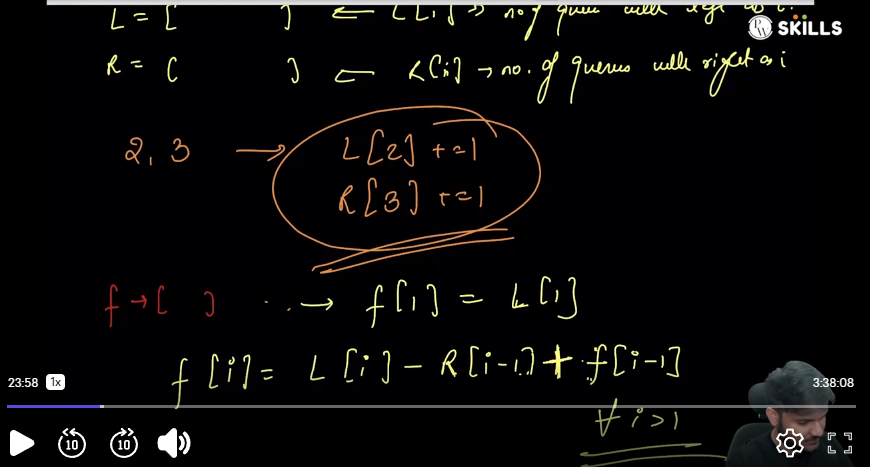 L = [ ] ← L[i] → no of queries with left as i.
PW SKILLS
R = [ ] ← R[i] → no. of queries with right as i
2, 3 → L[2] +=1
R[3] +=1
f → [ ] → f[1] = L[1]
f[i] = L[i] - R[i-1] + f[i-1]
∀ i>1
23:58 1x 3:38:08
10 10